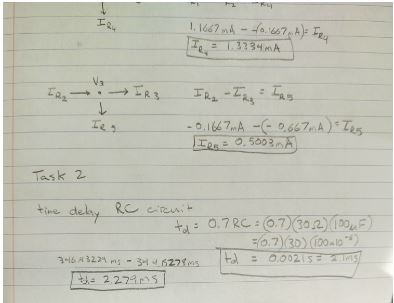 I_R4
1.1667mA - (-0.1667mA) = I_R4
I_R4 = 1.3334mA
V3
I_R2 → • → I_R3
I_R2 - I_R3 = I_R5
I_R5
-0.1667mA - (-0.667mA) = I_R5
I_R5 = 0.5003mA
Task 2
time delay RC circuit
td = 0.7RC = (0.7)(30Ω)(100μF)
= (0.7)(30)(100×10⁻⁶)
td = 0.0021s = 2.1ms
td = 2.279ms